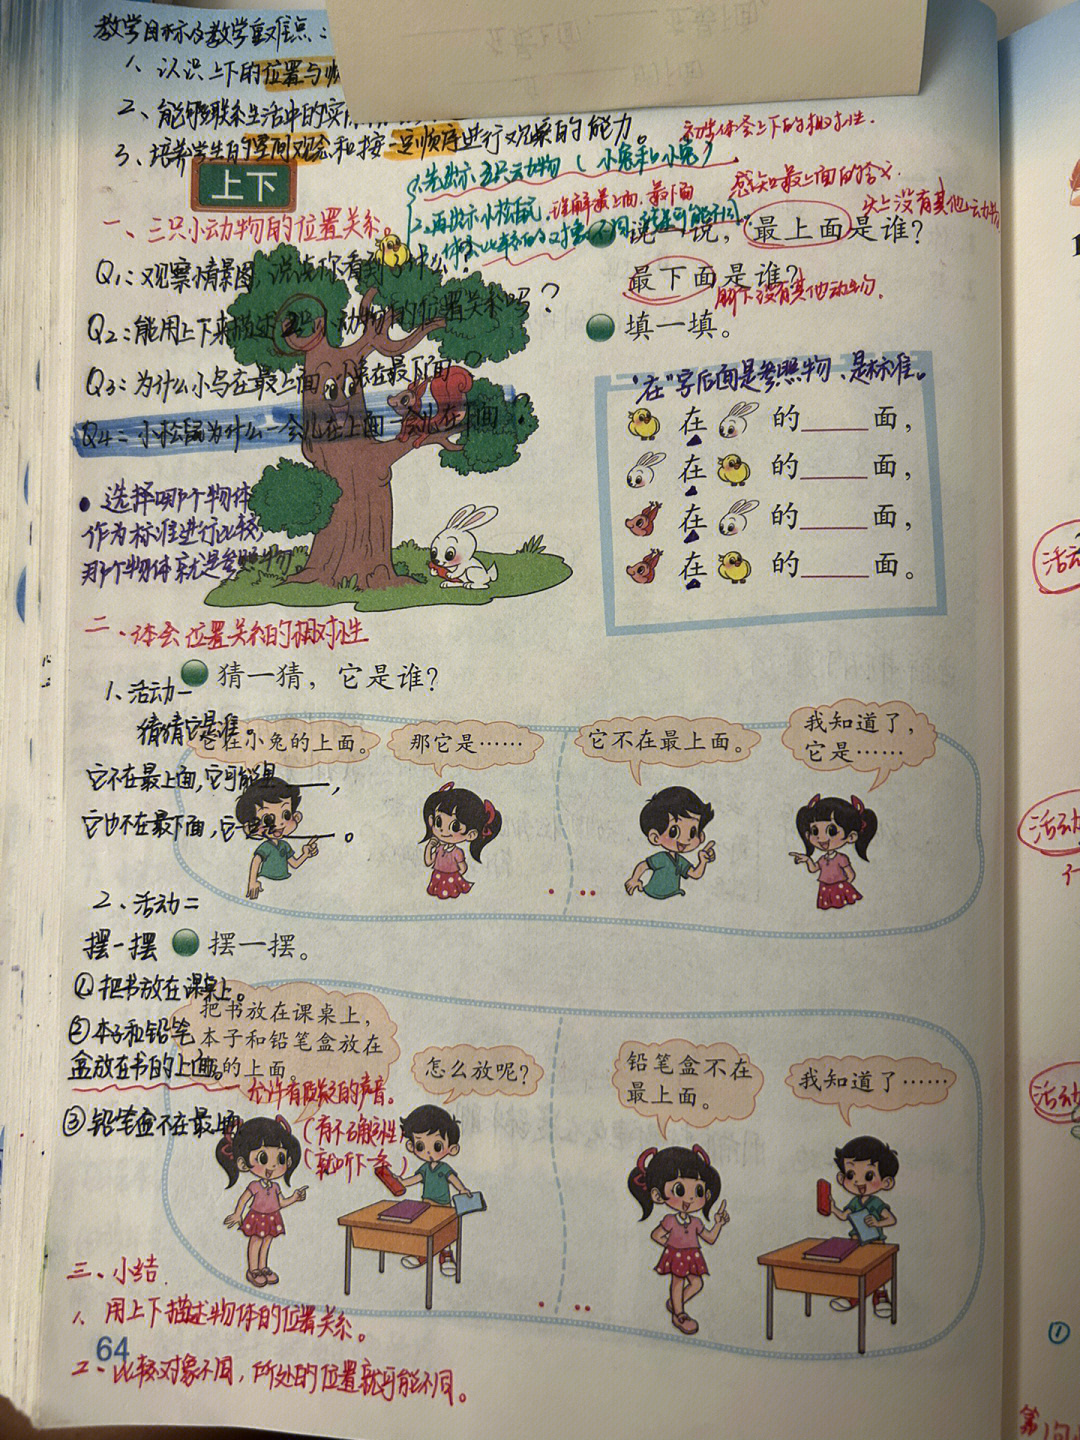 教学目标及教学重难点：
1、认识上下的位置与
2、能够联系生活中的实
3、培养学生的空间观念和按一定顺序进行观察的能力。
初步体会上下的相对性.
上下
1.先出示五只动物（小兔和小兔）
2.再出示小松鼠,
理解最上面、最下面
体会比较的对象不同,
就可能不同
感知最上面的含义.
头上没有其他动物
一、三只小动物的位置关系。
说一说，最上面是谁？
最下面是谁？
脚下没有其他动物.
Q1：观察情景图，说说你看到了什么？
Q2：能用上下来描述2只小动物的位置关系吗？
Q3：为什么小鸟在最上面，小兔在最下面？
Q4：小松鼠为什么一会儿在上面一会儿在下面？
填一填。
"在"字后面是参照物、是标准。
在 的 面，
在 的 面，
在 的 面，
在 的 面。
选择哪个物体
作为标准进行比较,
那个物体就是参照物
二、体会位置关系的相对性
猜一猜，它是谁？
1、活动一
猜猜它是谁。
它在小兔的上面。
那它是……
它不在最上面。
我知道了，
它是……
它不在最上面，它可能是，
它也不在最下面，它一定是。
2、活动二
摆一摆
摆一摆。
①把书放在课桌上。
②本子和铅笔
盒放在书的上面。
③铅笔盒不在最上面
把书放在课桌上，
本子和铅笔盒放在
的上面。
怎么放呢？
铅笔盒不在
最上面。
我知道了……
允许有质疑的声音。
（有不确定性）
（就听下一条）
三、小结.
1、用上下描述物体的位置关系。
64
2、比较对象不同，所处的位置就可能不同。
活动
活动
活动
①
第1句